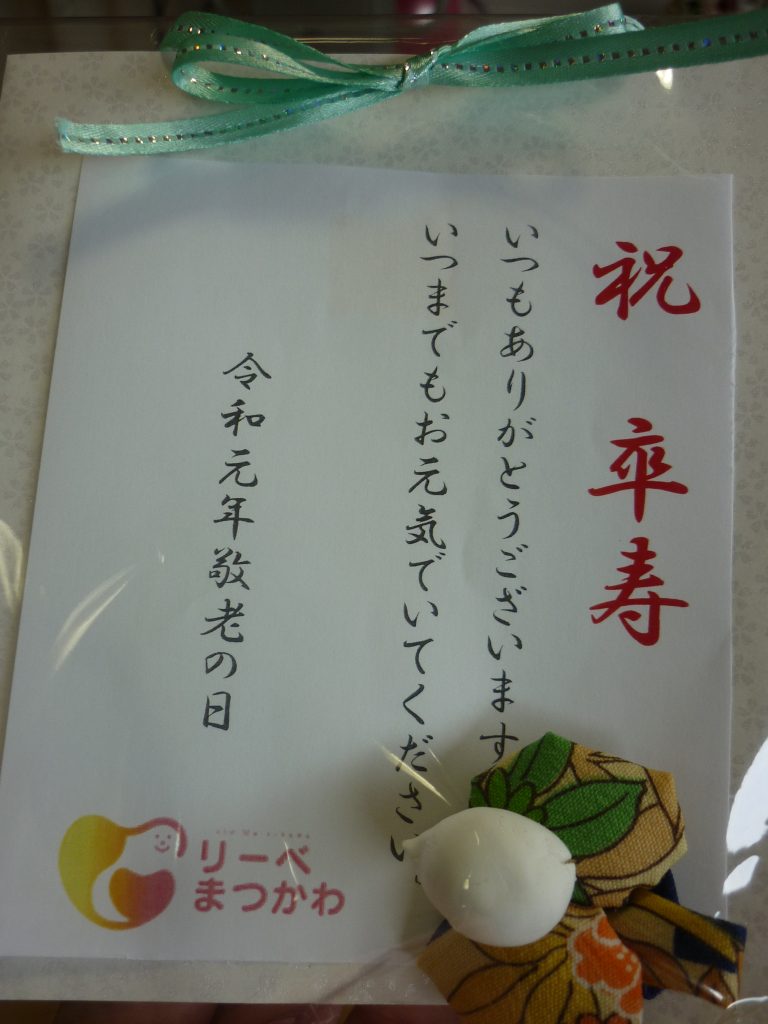 祝 卒寿
いつもありがとうございます
いつまでもお元気でいてください。
令和元年敬老の日
リーベ
まつかわ